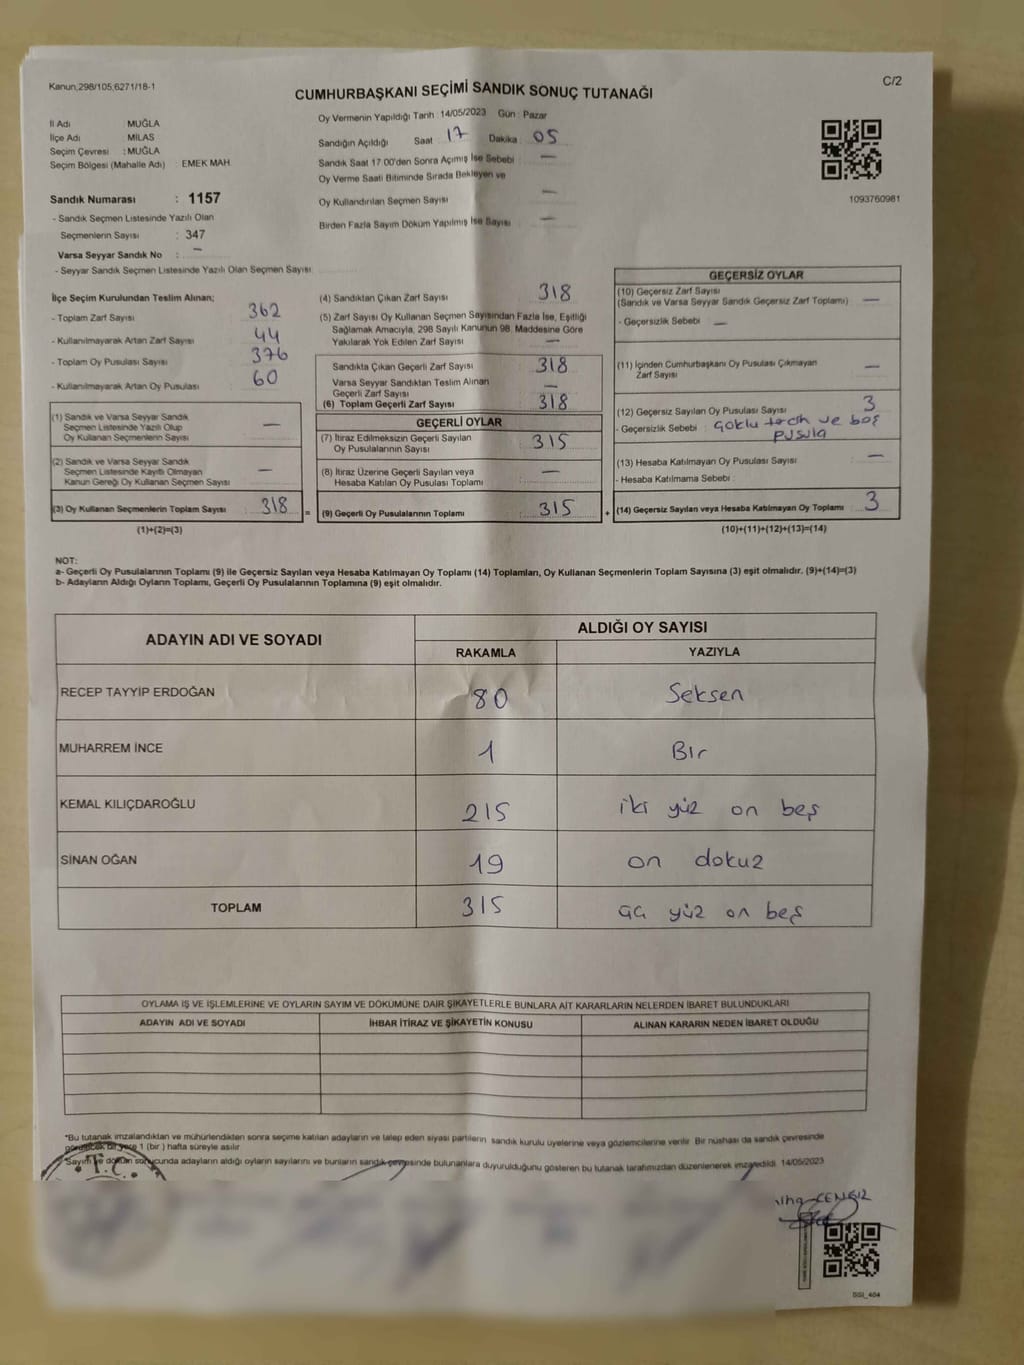 Kanun,298/105,6271/18-1
C/2
CUMHURBAŞKANI SEÇİMİ SANDIK SONUÇ TUTANAĞI
İl Adı MUĞLA
İlçe Adı MİLAS
Seçim Çevresi : MUĞLA
Seçim Bölgesi (Mahalle Adı) : EMEK MAH.
Sandık Numarası : 1157
- Sandık Seçmen Listesinde Yazılı Olan
Seçmenlerin Sayısı : 347
Varsa Seyyar Sandık No : —
- Seyyar Sandık Seçmen Listesinde Yazılı Olan Seçmen Sayısı
Oy Vermenin Yapıldığı Tarih :14/05/2023 Gün : Pazar
Sandığın Açıldığı Saat : 17 Dakika : 05
Sandık Saat 17:00'den Sonra Açımış İse Sebebi : —
Oy Verme Saati Bitiminde Sırada Bekleyen ve
Oy Kullandırılan Seçmen Sayısı —
Birden Fazla Sayım Döküm Yapılmış İse Sayısı : —
1093760981
İlçe Seçim Kurulundan Teslim Alınan;
- Toplam Zarf Sayısı 362
- Kullanılmayarak Artan Zarf Sayısı 44
- Toplam Oy Pusulası Sayısı 376
- Kullanılmayarak Artan Oy Pusulası 60
(1) Sandık ve Varsa Seyyar Sandık
Seçmen Listesinde Yazılı Olup
Oy Kullanan Seçmenlerin Sayısı —
(2) Sandık ve Varsa Seyyar Sandık
Seçmen Listesinde Kayıtlı Olmayan
Kanun Gereği Oy Kullanan Seçmen Sayısı —
(3) Oy Kullanan Seçmenlerin Toplam Sayısı 318
(1)+(2)=(3)
(4) Sandıktan Çıkan Zarf Sayısı 318
(5) Zarf Sayısı Oy Kullanan Seçmen Sayısından Fazla İse, Eşitliği
Sağlamak Amacıyla, 298 Sayılı Kanunun 98. Maddesine Göre
Yakılarak Yok Edilen Zarf Sayısı —
Sandıkta Çıkan Geçerli Zarf Sayısı 318
Varsa Seyyar Sandıktan Teslim Alınan
Geçerli Zarf Sayısı —
(6) Toplam Geçerli Zarf Sayısı 318
GEÇERLİ OYLAR
(7) İtiraz Edilmeksizin Geçerli Sayılan
Oy Pusulalarının Sayısı 315
(8) İtiraz Üzerine Geçerli Sayılan veya
Hesaba Katılan Oy Pusulası Toplamı —
= (9) Geçerli Oy Pusulalarının Toplamı 315 +
GEÇERSİZ OYLAR
(10) Geçersiz Zarf Sayısı
(Sandık ve Varsa Seyyar Sandık Geçersiz Zarf Toplamı) —
- Geçersizlik Sebebi : —
(11) İçinden Cumhurbaşkanı Oy Pusulası Çıkmayan
Zarf Sayısı —
(12) Geçersiz Sayılan Oy Pusulası Sayısı 3
- Geçersizlik Sebebi : Çoklu tercih ve boş
pusula
(13) Hesaba Katılmayan Oy Pusulası Sayısı —
- Hesaba Katılmama Sebebi :
(14) Geçersiz Sayılan veya Hesaba Katılmayan Oy Toplamı 3
(10)+(11)+(12)+(13)=(14)
NOT:
a- Geçerli Oy Pusulalarının Toplamı (9) ile Geçersiz Sayılan veya Hesaba Katılmayan Oy Toplamı (14) Toplamları, Oy Kullanan Seçmenlerin Toplam Sayısına (3) eşit olmalıdır. (9)+(14)=(3)
b- Adayların Aldığı Oyların Toplamı, Geçerli Oy Pusulalarının Toplamına (9) eşit olmalıdır.
ADAYIN ADI VE SOYADI ALDIĞI OY SAYISI
RAKAMLA YAZIYLA
RECEP TAYYİP ERDOĞAN 80 Seksen
MUHARREM İNCE 1 Bir
KEMAL KILIÇDAROĞLU 215 iki yüz on beş
SİNAN OĞAN 19 on dokuz
TOPLAM 315 üç yüz on beş
OYLAMA İŞ VE İŞLEMLERİNE VE OYLARIN SAYIM VE DÖKÜMÜNE DAİR ŞİKAYETLERLE BUNLARA AİT KARARLARIN NELERDEN İBARET BULUNDUKLARI
ADAYIN ADI VE SOYADI İHBAR İTİRAZ VE ŞİKAYETİN KONUSU ALINAN KARARIN NEDEN İBARET OLDUĞU
*Bu tutanak imzalandıktan ve mühürlendikten sonra seçime katılan adayların ve talep eden siyasi partilerin sandık kurulu üyelerine veya gözlemcilerine verilir. Bir nüshası da sandık çevresinde
görülecek bir yere 1 (bir) hafta süreyle asılır.
*Sayım ve döküm sonucunda adayların aldığı oyların sayılarını ve bunların sandık çevresinde bulunanlara duyurulduğunu gösteren bu tutanak tarafımızdan düzenlenerek imza edildi. 14/05/2023
T.C.
CENGİZ
SSI_404